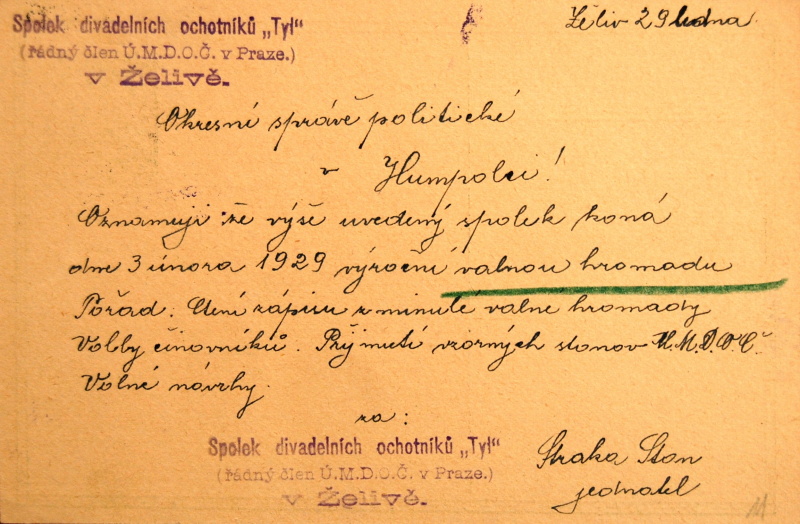 Spolek divadelních ochotníků „Tyl"
(řádný člen Ú.M.D.O.Č. v Praze.)
v Želivě.
Želiv 29 ledna
Okresní správě politické
v Humpolci!
Oznamuji že výše uvedený spolek koná
dne 3 února 1929 výroční valnou hromadu
Pořad: Čtení zápisu z minulé valné hromady
Volby činovníků. Přijmutí vzorných stanov Ú.M.D.O.Č.
Volné návrhy.
za:
Spolek divadelních ochotníků „Tyl"
(řádný člen Ú.M.D.O.Č. v Praze.)
v Želivě.
Straka Stan
jednatel